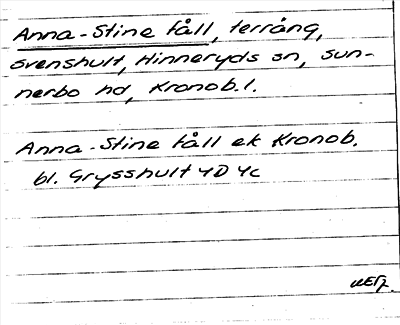 Anna-Stine fåll, terräng,
Svenshult, Hinneryds sn, Sun-
nerbo hd, Kronob. l.
Anna-Stine fåll ek Kronob.
bl. Grysshult 4D 4c